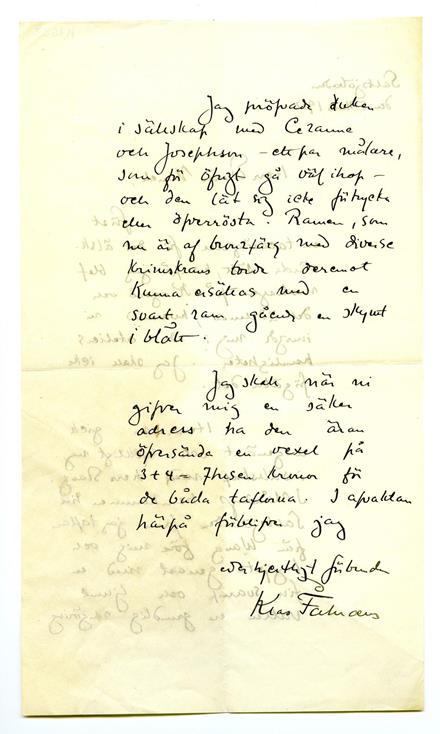 Jag pröfvade duken
i sällskap med Cezanne
och Josephson – ett par målare,
som för öfrigt gå väl ihop –
och den lät sig icke förtrycka
eller öfverrösta. Ramen, som
nu är af bronzfärg med diverse
krimskrams torde deremot
kunna ersättas med en
svart ram gående en skymt
i blått.
Jag skall när ni
gifver mig en säker
adress ha den äran
öfversända en vexel på
3+4 = 7 tusen kronor för
de båda taflorna. I afvaktan
härpå förblifver jag
eder hjertligt förbundne
Klas Fåhraeus